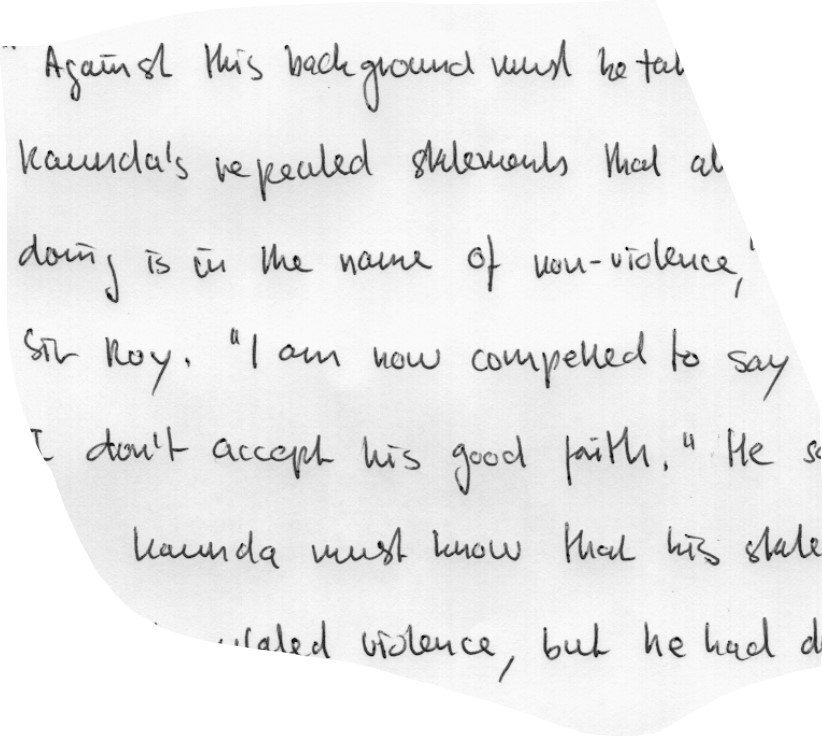 " Against this background must be
Kaunda's repeated statements that
doing is in the name of non-violence,"
Sir Roy. "I am now compelled to say
I don't accept his good faith." He
Kaunda must know that his
violence, but he had